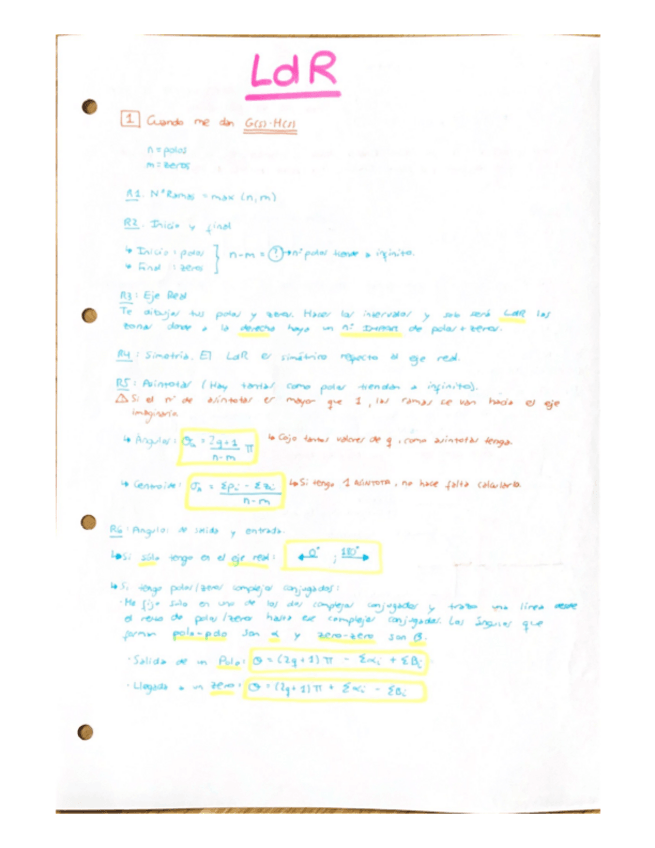 LdR
1 Cuando me dan G(s)·H(s)
n = polos
m = zeros
R1. NºRamas = max (n, m)
R2. Inicio y final
↳ Inicio : polos
↳ Final : zeros
} n-m = ? → nº polos tiende a infinito.
R3: Eje Real
Te dibujas tus polos y zeros. Haces los intervalos y solo será LdR las
zonas donde a la derecha haya un nº Impar de polos + zeros.
R4: Simetría. El LdR es simétrico respecto al eje real.
R5: Asíntotas (Hay tantas como polos tiendan a infinito).
⚠ Si el nº de asíntotas es mayor que 1, las ramas se van hacia el eje
imaginario.
↳ Angulos: θa = 2q+1 / n-m π ↳ Cojo tantos valores de q, como asíntotas tengo.
↳ Centroide: σa = Σpi - Σzi / n-m ↳ Si tengo 1 asíntota, no hace falta calcularlo.
R6: Angulos de salida y entrada.
↳ Si sólo tengo en el eje real: 0° ; 180°
↳ Si tengo polos/zeros complejos conjugados:
· Me fijo solo en uno de los dos complejos conjugados y trazo una línea desde
el resto de polos/zeros hasta ese complejo conjugado. Los ángulos que
forman polo-polo son α y zero-zero son β.
· Salida de un Polo: θ = (2q+1)π - Σαi + Σβi
· Llegada a un zero: θ = (2q+1)π + Σαi - Σβi